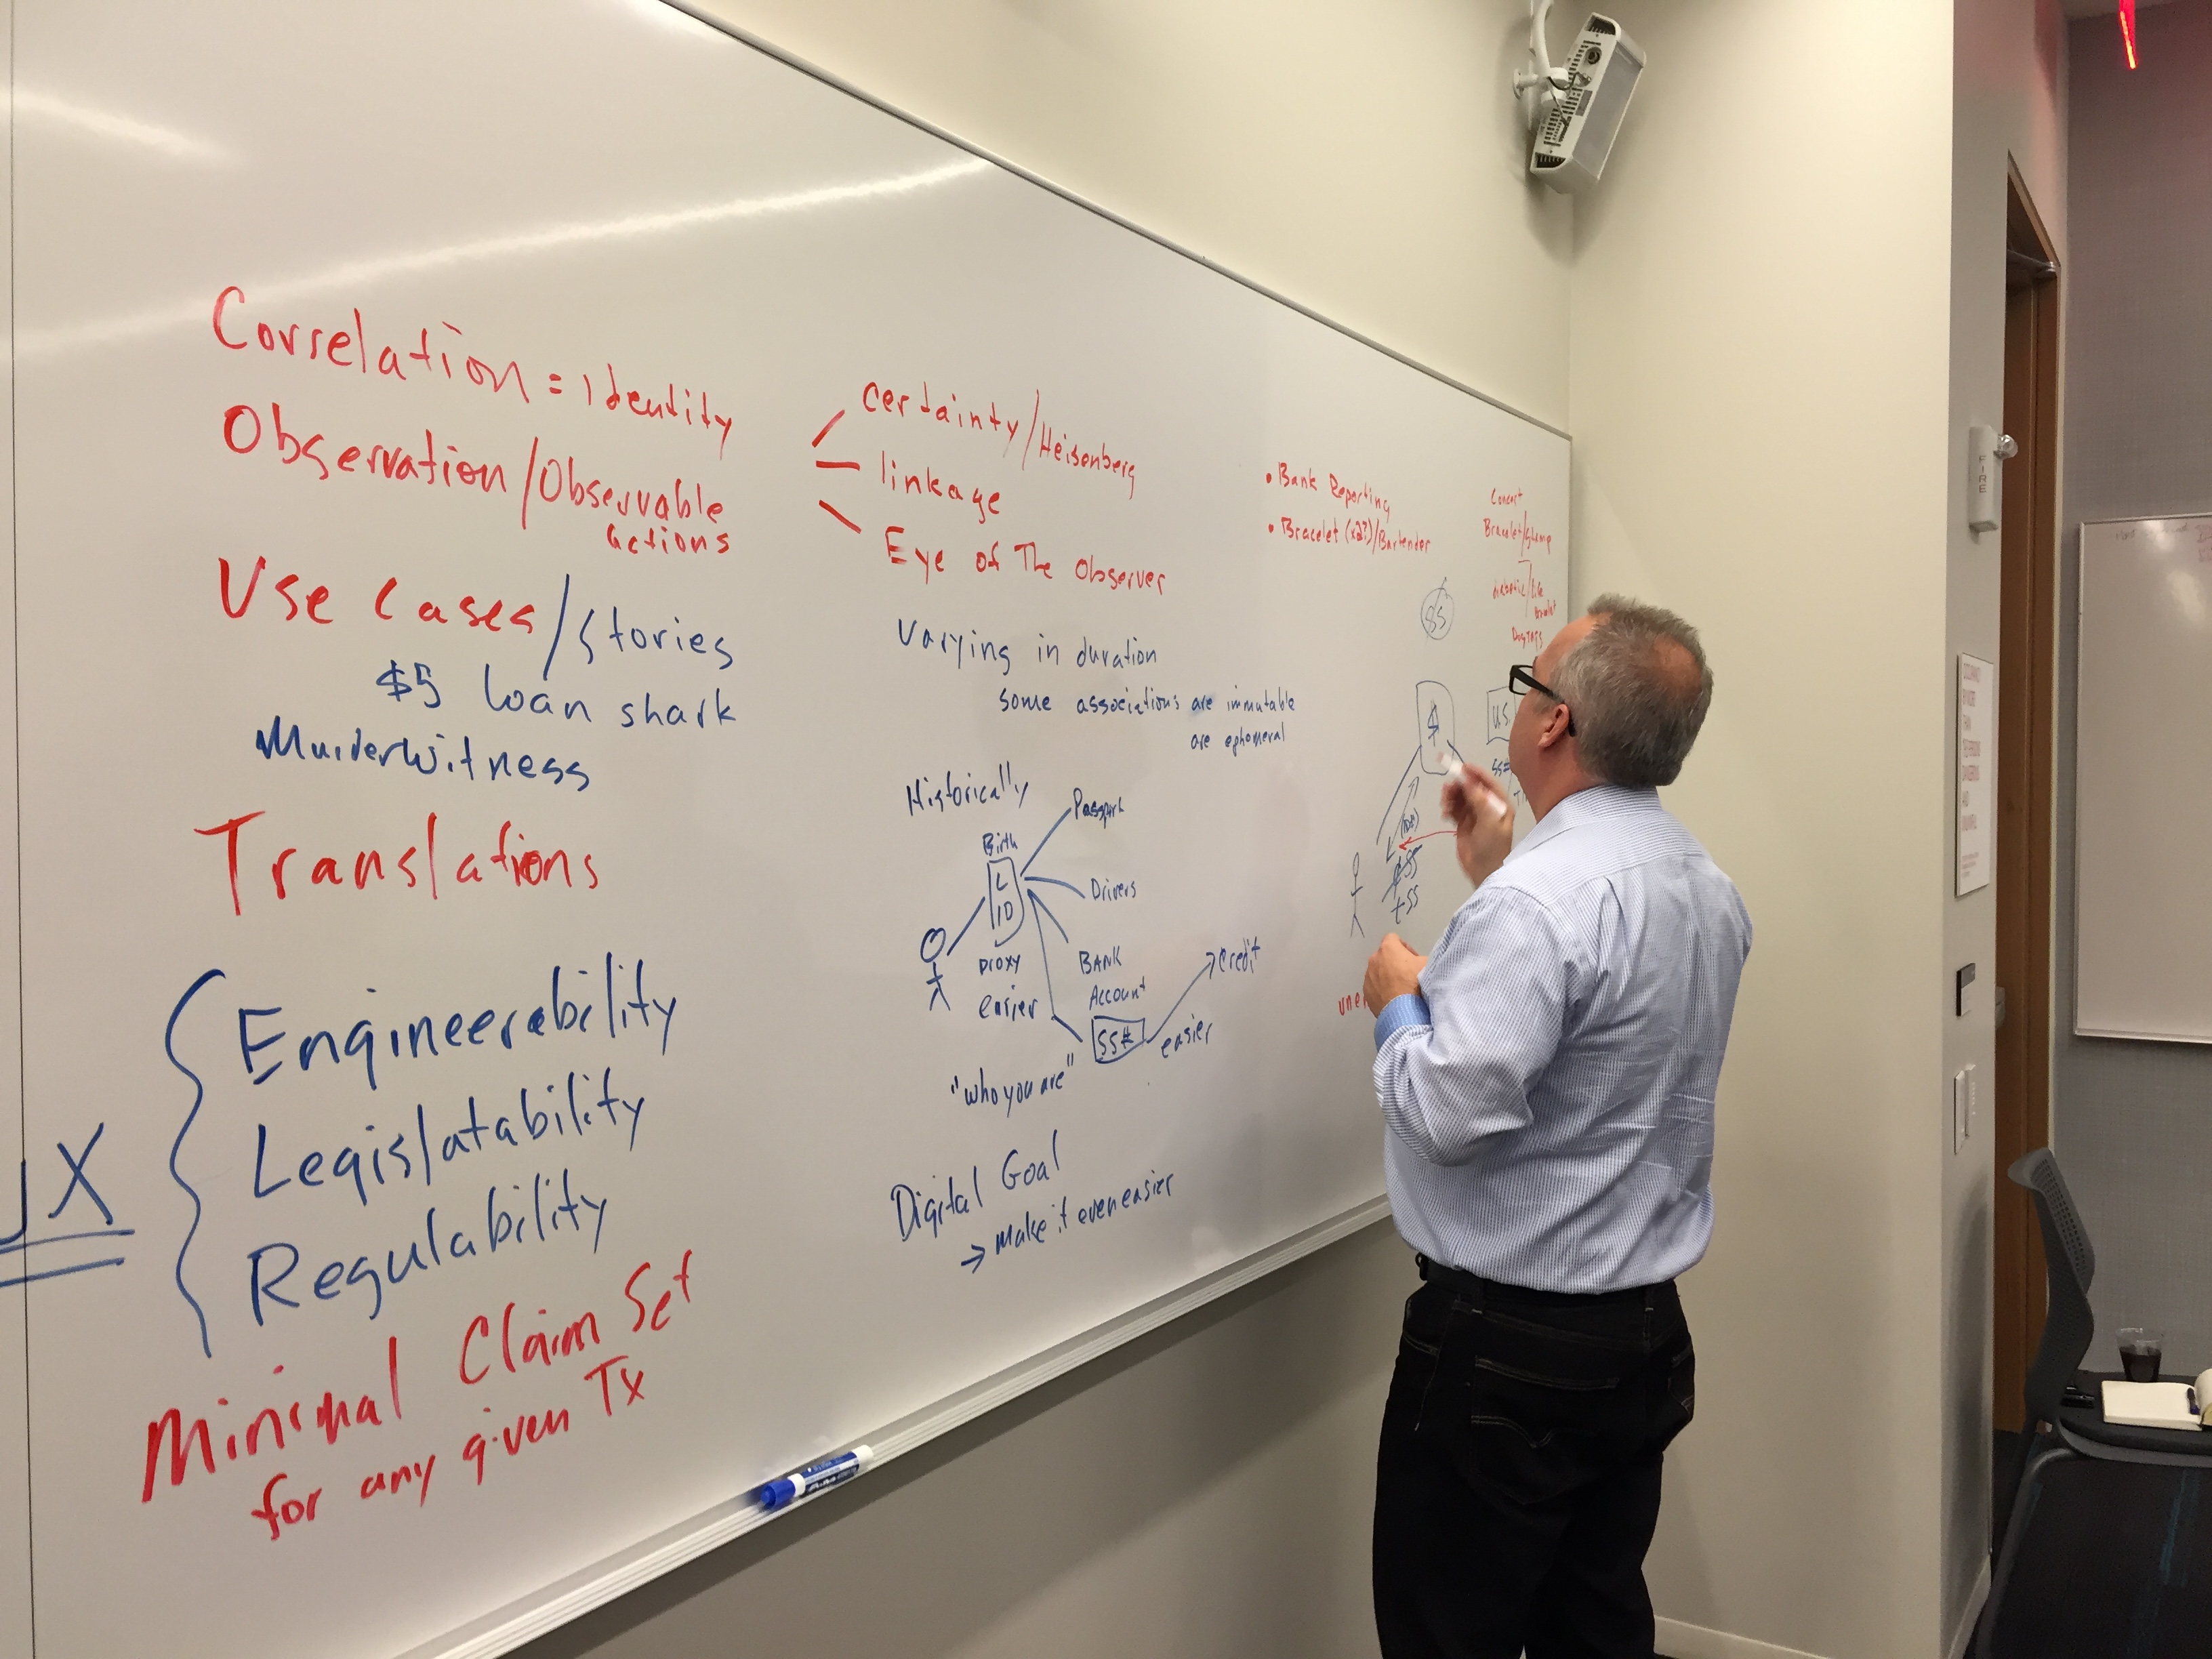 Correlation = Identity
Observation/Observable
actions
Use Cases/Stories
$5 loan shark
Murder Witness
Translations
UX
Engineerability
Legislatability
Regulability
Minimal Claim Set
for any given Tx
Certainty/Heisenberg
linkage
Eye of The Observer
Varying in duration
some associations are immutable
are ephemeral
Historically
Birth
L
ID
proxy
easier
Passport
Drivers
BANK
Account
SS#
easier
credit
"who you are"
Digital Goal
→ make it even easier
• Bank Reporting
• Bracelet (x2?)/Bartender
Concert
Bracelet/Stamp
Dog Tags
$
US
SS#
+SS
FIRE